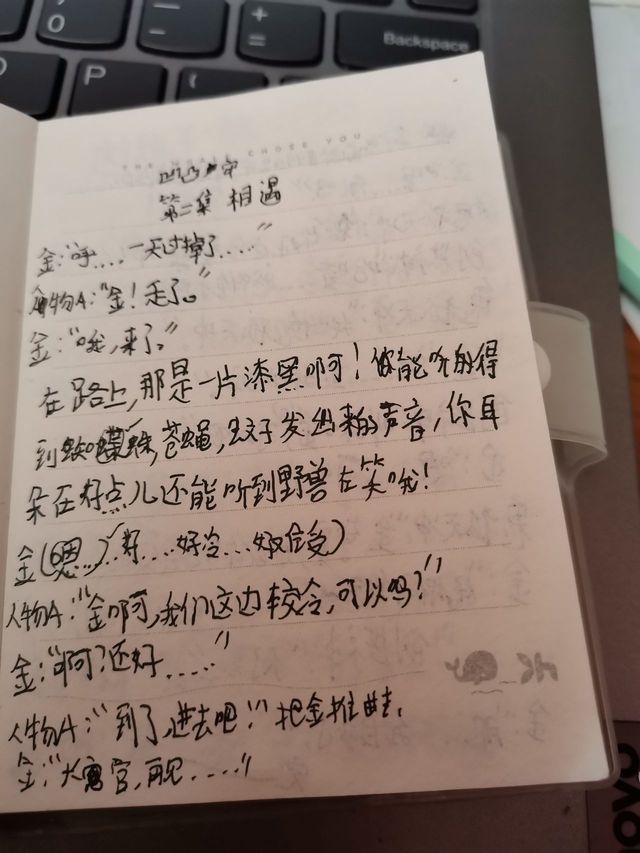 P
+
=
Backspace
THE HEART CHOSE YOU
凹凸
第二集 相遇
金:"呼....一天过掉了...."
人物A:"金!走了。"
金:"哦,来了。"
在路上,那是一片漆黑啊!你能听的得
到 苍蝇,蚊子发出来的声音,你耳
朵在好点儿还能听到野兽在笑哦!
金( 好....好冷...好 )
人物A:"金啊,我们这边较冷,可以吗?"
金:"啊?还好....."
人物A:"到了,进去吧!"把金推
金:"大 宫,再见....."
novo